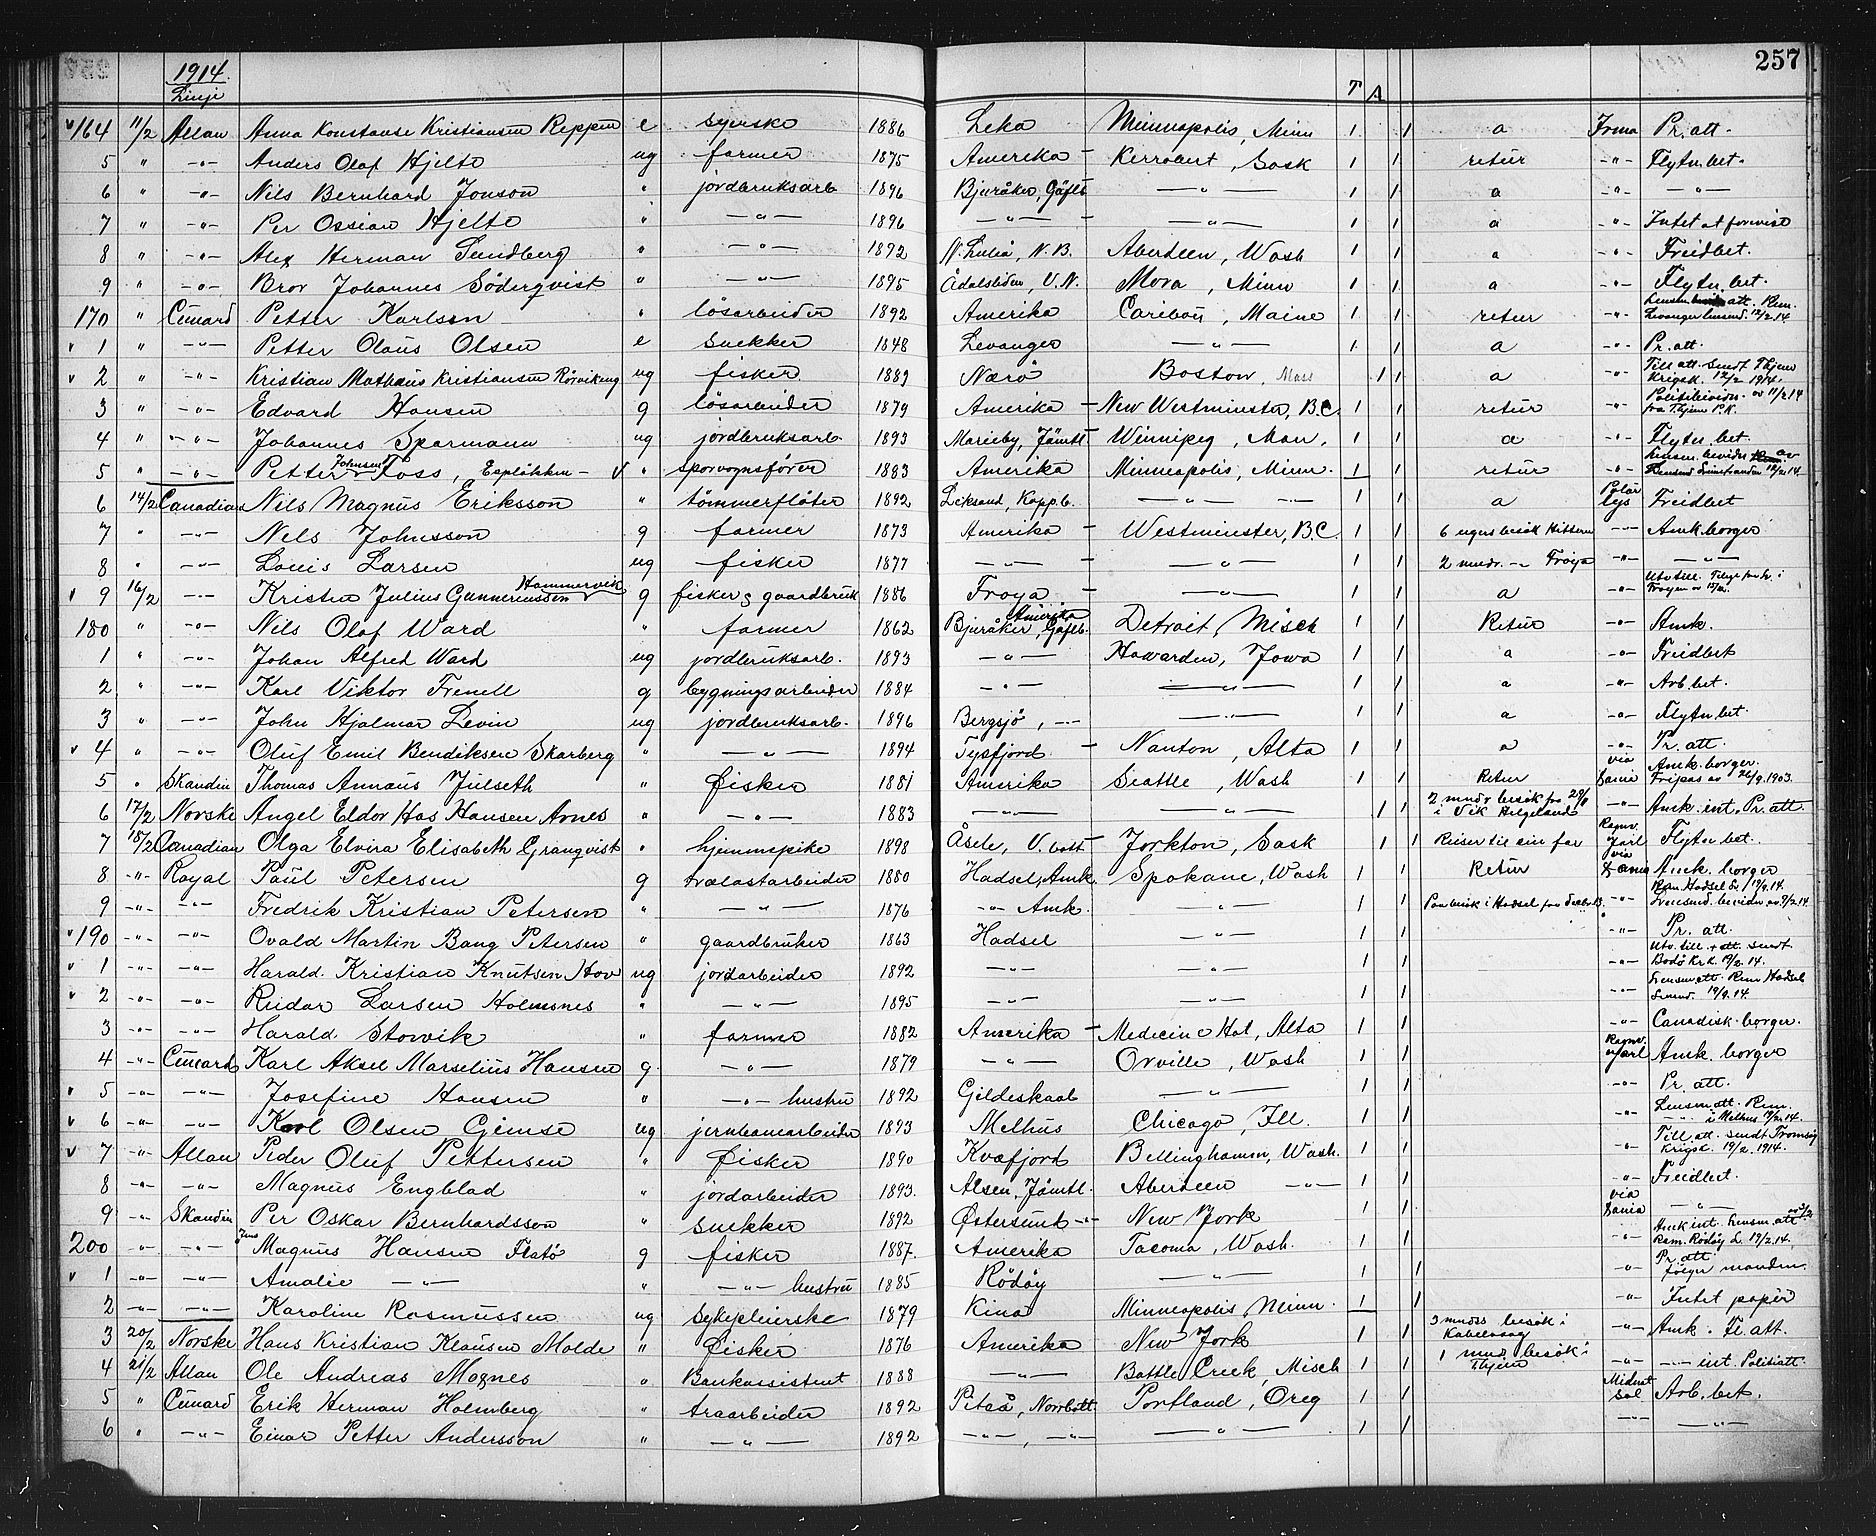 1914. 257
Linje T A
v 164 11/2 Allan Anna Konstanse Kristiansen Reppen e syerske 1886 Leka Minneapolis, Minn 1 1 a Irma Pr. att.
5 " -"- Anders Olof Hjelte ug farmer 1875 Amerika - Kerrobert, Sask 1 1 retur -"- Flytn. bet.
6 " -"- Nils Bernhard Jonson " jordbruksarb 1896 Bjuråker, Gäfleb -"- 1 1 a -"- -"-
7 " -"- Per Ossian Hjelte " -"- 1896 -"- -"- 1 1 a -"- Intet at forevise
8 " -"- Alex Herman Sundberg " -"- 1892 N. Luleå, N.B. Aberdeen, Wash 1 1 a -"- Freidbet.
9 " -"- Bror Johannes Söderqvist " -"- 1895 Ådalsliden, V.N. Mora, Minn 1 1 a -"- Flytn. bet.
170 " Cunard Petter Karlsen " lösarbeider 1892 Amerika Caribou, Maine 1 1 retur -"- Lensm. att. Rem. Levanger lensmd. 12/2.14
v 1 " -"- Petter Olaus Olsen e snekker 1848 Levanger -"- 1 1 a -"- Pr. att.
v 2 " -"- Kristian Mathæus Kristiansen Rörviking ug fisker 1889 Nærö Boston, Mass 1 1 a -"- Till. att. sendt Thjem Krigsk. 12/2 1914.
3 " -"- Edvard Hansen g lösarbeider 1879 Amerika - New Westminster, B.C. 1 1 retur -"- Politibevidn. av 11/2 14 fra Thjem P.K.
4 " -"- Johannes Sparmann ug jordbruksarb. 1893 Marieby, Jämtl - Winnipeg, Man. 1 1 a -"- Flytn. bet.
5 " -"- Petter Johnsen Foss, Esplökken - v " sporvognsförer 1883 Amerika Minneapolis, Minn. 1 1 retur -"- Lensm. bevidn. av 12/2 14.
6 14/2 Canadian Nils Magnus Eriksson " tömmerflöter 1892 Leksand, Kopp.b. -"- 1 1 a Polar lys Freidbet
7 " -"- Nels Johnsson g farmer 1873 Amerika - Westminster, B.C. 1 1 6 ugers besök Hitteren -"- Amk. borger
8 " -"- Louis Larsen ug fisker 1877 -"- - -"- 1 1 2 mndr. -"- Fröya -"- -"-
v 9 16/2 -"- Kristen Julius Gunneriussen Hammervik g fisker & gaardbruk 1886 Froya - -"- 1 1 a -"- Utv. till.
180 " -"- Nils Olof Ward " farmer 1862 Bjuråker, Gäfleb. Amerika Detroit, Misch 1 1 Retur -"- Amk.
1 " -"- Johan Alfred Ward ug jordbruksarb. 1893 -"- Hawarden, Iowa 1 1 a -"- Freidbet
2 " -"- Karl Viktor Frenell g bygningsarbeider 1884 -"- -"- 1 1 a -"- Arb. bet.
3 " -"- John Hjalmar Levin ug jordbruksarb. 1896 Bergsjö, -"- -"- 1 1 a -"- Flytn. bet.
v 4 " -"- Oluf Emil Bendiksen Skarberg " -"- 1894 Tysfjord - Nanton, Alta 1 1 a -"- Pr. att.
5 " Skandin Thomas Annæus Julseth " Fisker 1881 Amerika Seattle, Wash 1 1 Retur via Dania Amk. borger. Fripas av 26/9. 1903.
6 17/2 Norske Angel Eldor Has Hansen Arnes " -"- 1883 -"- -"- 1 1 2 mndr besök fra 29/1 i Vik Helgeland -"- Amk. int. Pr. att.
7 18/2 Canadian Olga Elvira Elisabeth Granqvist " hjemmepike 1898 Åsele, V. bott - Yorkton, Sask 1 1 Reiser til sin far Ragnv. Jarl Flytn bet.
8 -"- Royal Paul Petersen g trælastarbeider 1880 Hadsel, Amk. Spokane, Wash 1 1 Retur via Dania Amk. borger
9 -"- -"- Fredrik Kristian Petersen " -"- 1876 -"- Amk. -"- 1 1 Paa besök i Hadsel fra Decbr. 13. -"- Rem Hadsel L. 17/9.14. Lensmd. bevidn. av 9/2.14
v 190 -"- -"- Ovald Martin Bang Petersen " gaardbruker 1863 Hadsel -"- 1 1 -"- Pr. att.
v 1 -"- -"- Harald Kristian Knutsen Hov ug jordarbeider 1892 -"- -"- 1 1 -"- Utv. till. + att. sendt Bodö Kr.k. 19/2.14.
v 2 -"- -"- Reidar Larsen Holmesnes " -"- 1895 -"- -"- 1 1 -"- Lensm. att. Rem Hadsel Lensmd. 19/9.14.
3 -"- -"- Harald Storvik " farmer 1882 Amerika - Medicine Hat, Alta 1 1 -"- Canadisk borger.
4 -"- Cunard Karl Aksel Marselius Hansen g -"- 1879 -"- Orville, Wash 1 1 Ragnv. Jarl Amk. borger
v 5 -"- -"- Josefine Hansen " -"- hustru 1892 Gildeskaal -"- 1 1 -"- Pr. att.
v 6 -"- -"- Karl Olsen Gjemse ug jernbanearbeider 1893 Melhus Chicago, Ill. 1 1 -"- Lensm att. Rem. -"- i Melhus 19/2.14.
v 7 -"- Allan Peder Oluf Pettersen " Fisker 1890 Kvæfjord Bellinghamm, Wash. 1 1 -"- Till. att. sendt Tromsö Krigsk. 19/2. 1914.
8 -"- -"- Magnus Engblad " jordarbeider 1893. Alsen, Jämtl. Aberdeen -"- 1 1 -"- Freidbet.
9 -"- Skandin Per Oskar Bernhardsson " snekker 1892 Østersund -"- New York 1 1 via Dania -"-
200 -"- -"- Jens Magnus Hansen Flatö g fisker 1887. Amerika Tacoma, Wash. 1 1 -"- Amk int. Lensm. att av 3/2 Rem. Rödöy L. 19/2.14.
v 1 -"- -"- Amalie -"- " -"- hustru 1885 Rödöy -"- 1 1 -"- Pr. att fölger manden.
2 -"- -"- Karoline Rasmussen ug sykepleierske 1879 Kina Minneapolis Minn. 1 1 -"- Intet papir
3 20/2 Norske Hans Kristian Klausen Molde " Fisker 1876 Amerika New York 1 1 3 mndrs besök i Kabelvaag -"- Amk. Fl. att.
4 21/2 Allan Ole Andreas Mognes " Bankassistent 1888 -"- Battle Creek, Misch 1 1 1 mnd. besök i Thjem -"- -"- int. Politiatt.
5 " Cunard Erik Herman Holmberg " træarbeider 1892 Piteå, Norrbott. Portland, Oreg 1 1 Midnat sol Arb. bet.
6 " -"- Einar Petter Andersson " -"- 1892 -"-, -"- -"- 1 1 -"- -"-